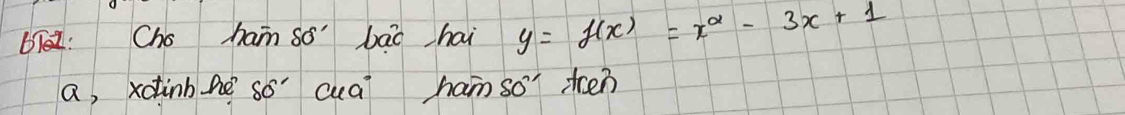 BT2: Cho hàm số bậc hai y = f(x) = x² - 3x + 1
a, xđịnh hệ số của hàm số trên